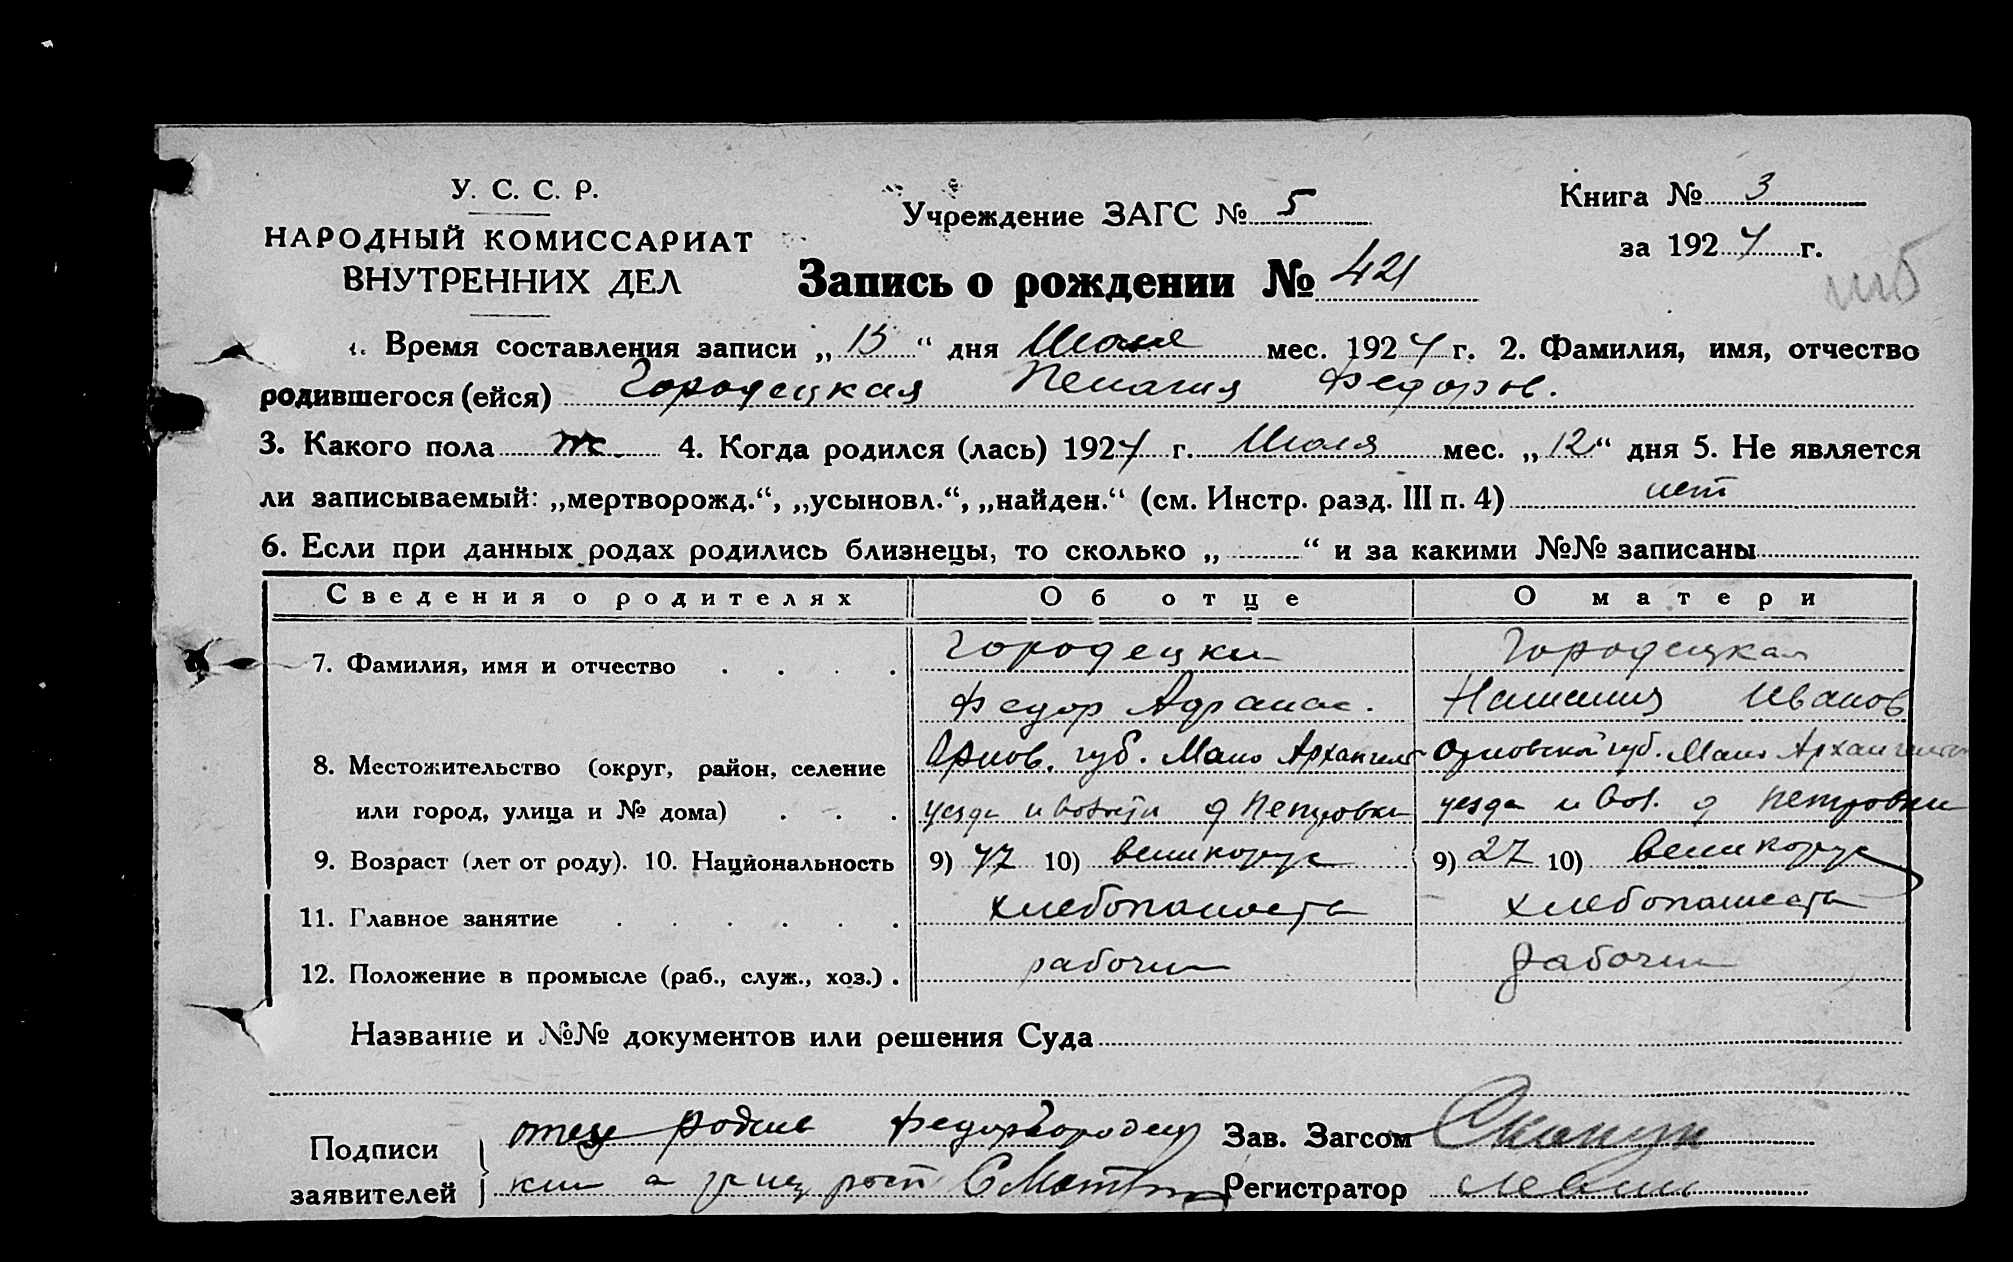 У. С. С. Р.
НАРОДНЫЙ КОМИССАРИАТ
ВНУТРЕННИХ ДЕЛ
Учреждение ЗАГС № 5
Книга № 3
за 1924 г.
Запись о рождении № 421
1. Время составления записи „15“ дня Июля мес. 1924 г. 2. Фамилия, имя, отчество
родившегося (ейся) Городецкая Пелагия Федоров.
3. Какого пола ж. 4. Когда родился (лась) 1924 г. Июля мес. „12“ дня 5. Не является
ли записываемый: „мертворожд.“, „усыновл.“, „найден.“ (см. Инстр. разд. III п. 4) нет
6. Если при данных родах родились близнецы, то сколько „ “ и за какими №№ записаны
Сведения о родителях Об отце О матери
7. Фамилия, имя и отчество Городецки Городецкая
Федор Адранас. Иванов
8. Местожительство (округ, район, селение Орлов. губ. Мало Архангель Орловской губ. Мало Архангельск
или город, улица и № дома) уезда и волости д Петровки уезда и вол. д Петровки
9. Возраст (лет от роду). 10. Национальность 9) 47 10) великорус 9) 27 10) великорус
11. Главное занятие хлебопашеств хлебопашеств
12. Положение в промысле (раб., служ., хоз.) рабочи рабочи
Название и №№ документов или решения Суда
Подписи
заявителей
отец Федор Городец
ки а
Зав. Загсом
Регистратор Левин